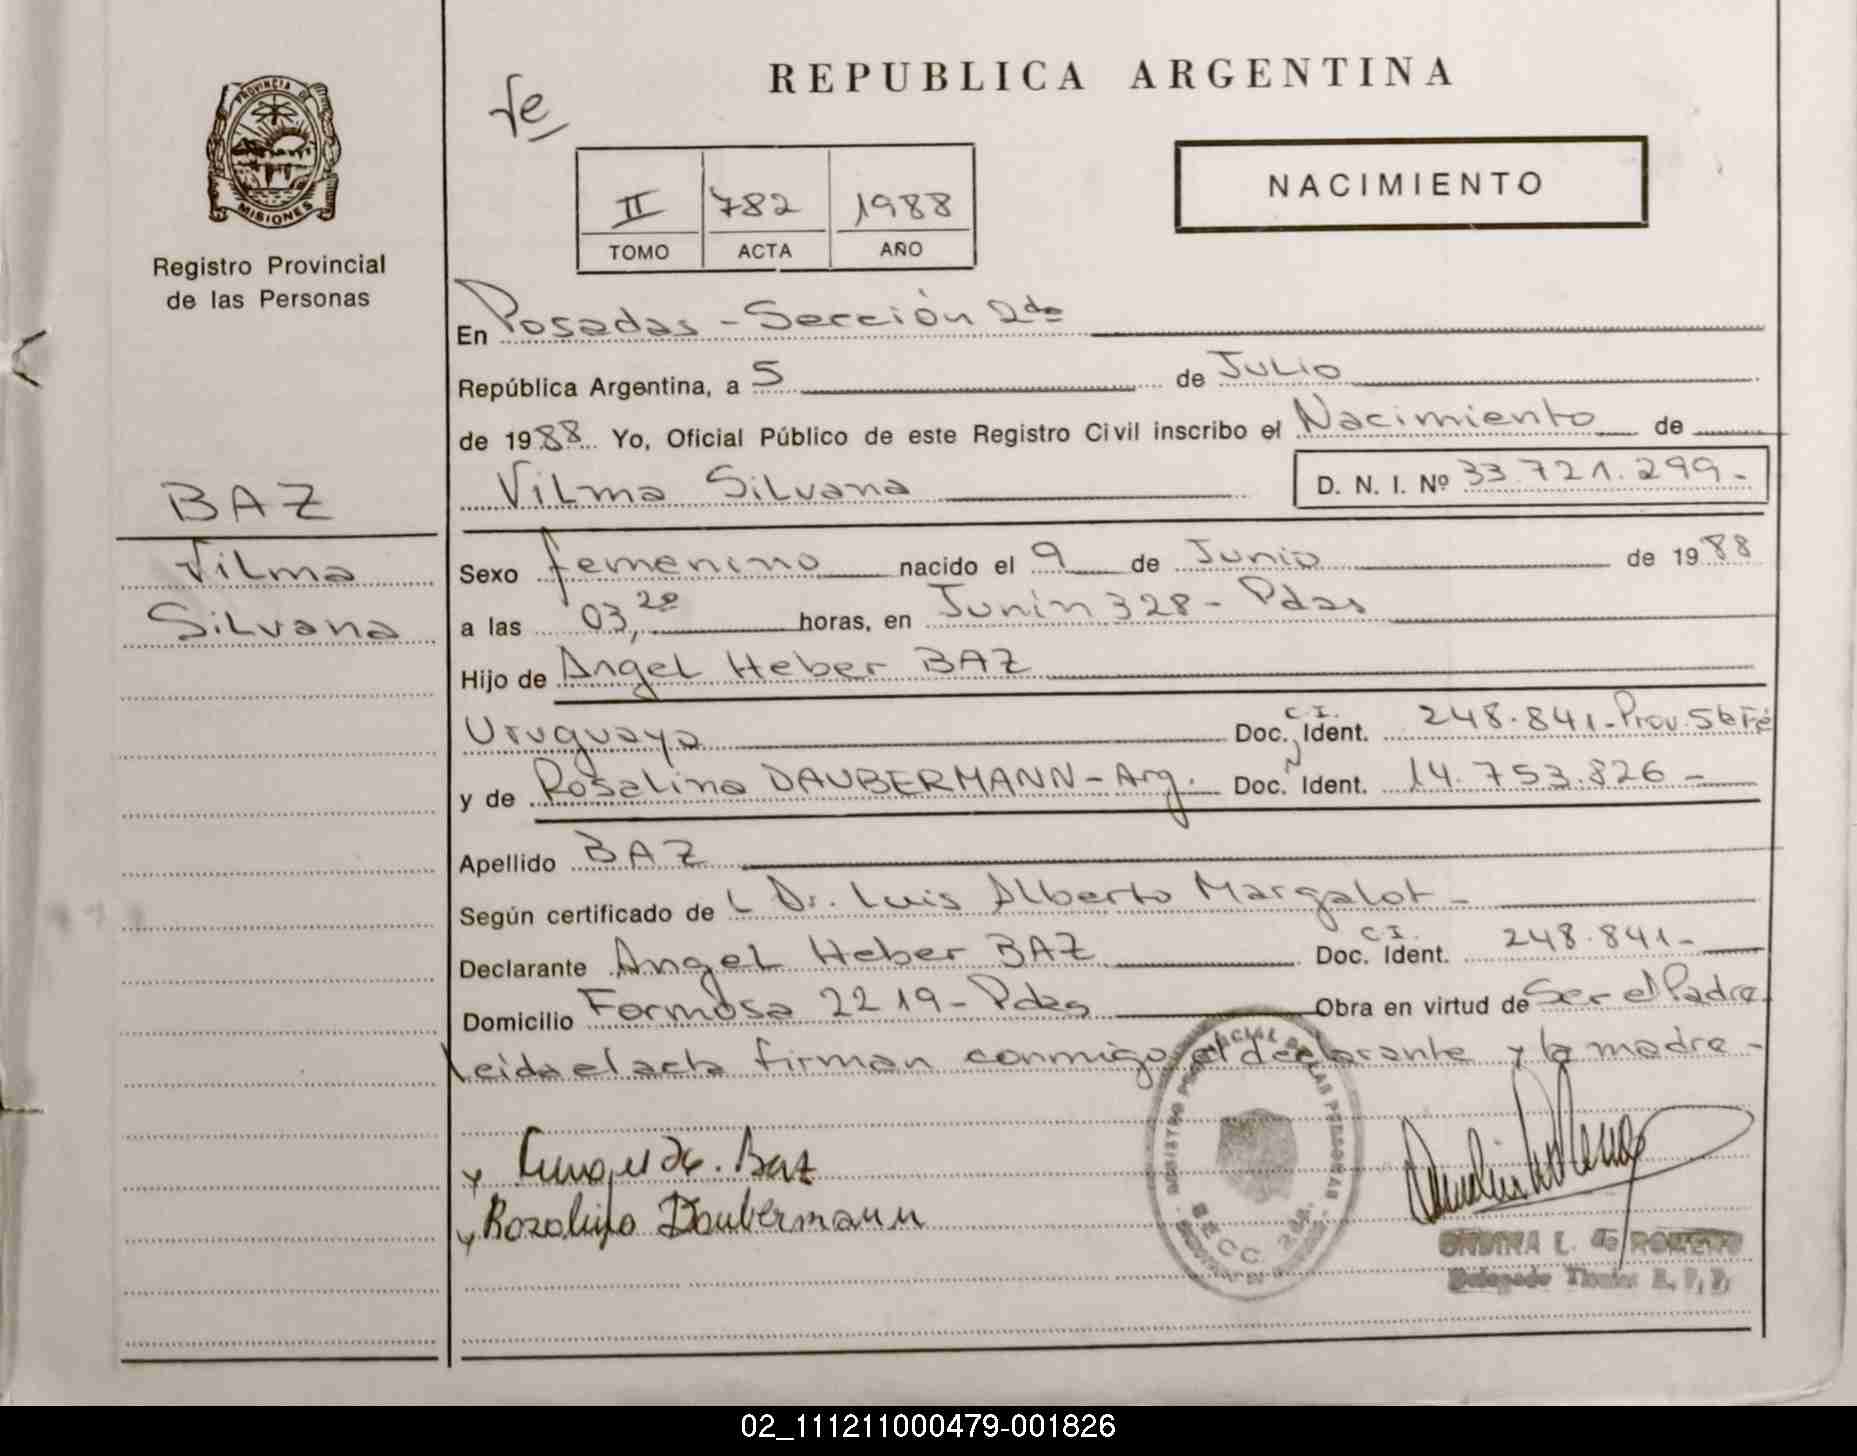 PROVINCIA DE
MISIONES
Registro Provincial
de las Personas
BAZ
Vilma
Silvana
REPUBLICA ARGENTINA
II 782 1988
TOMO ACTA AÑO
NACIMIENTO
En Posadas - Sección 2da
República Argentina, a 5 de Julio
de 1988 Yo, Oficial Público de este Registro Civil inscribo el Nacimiento de
Vilma Silvana D. N. I. Nº 33.721.299.-
Sexo femenino nacido el 9 de Junio de 1988
a las 03,20 horas, en Junin 328 - Pdas
Hijo de Angel Heber BAZ
Uruguayo Doc. C.I. Ident. 248.841 - Prov. Sta Fé
y de Rosalina DAUBERMANN - Arg. Doc. N Ident. 14.753.826 -
Apellido BAZ
Según certificado de L Dr. Luis Alberto Margalot -
Declarante Angel Heber BAZ Doc. C.I. Ident. 248.841 -
Domicilio Formosa 2219 - Pdas Obra en virtud de Ser el Padre.
Leida el acta firman conmigo el declarante y la madre -
Baz
Daubermann
REGISTRO PROVINCIAL DE LAS PERSONAS
SECC. 2da.
ONDINA L. de ROMERO
02_111211000479-001826